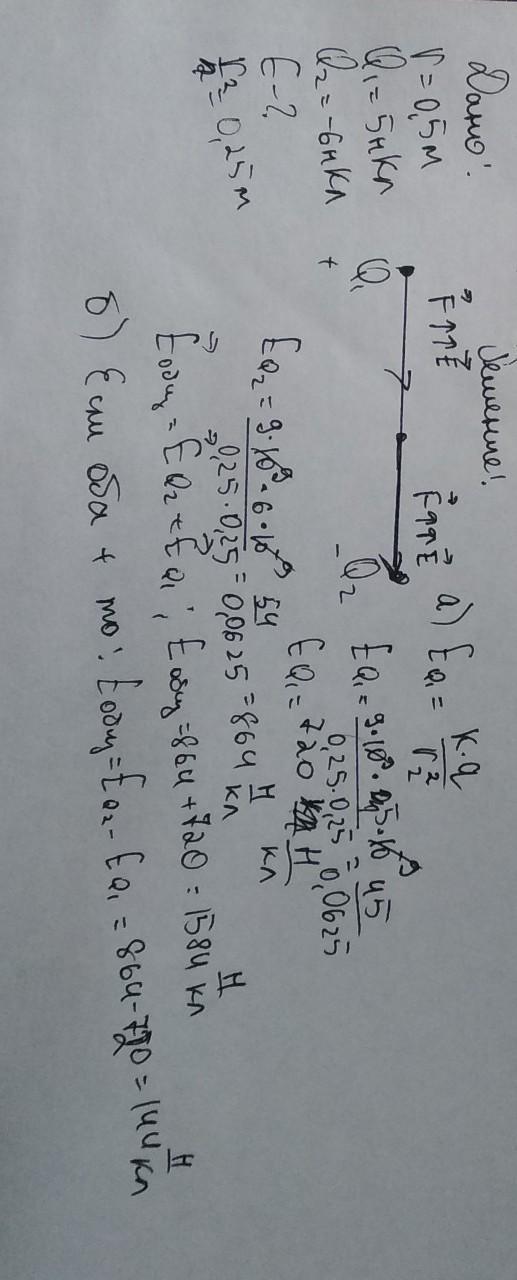 Дано:
r = 0,5 м
Q₁ = 5 нКл
Q₂ = -6 нКл
E - ?
r/2 = 0,25 м
Решение:
F⃗ ↑↑ E⃗
F⃗ ↑↑ E⃗
Q₁
+
- Q₂
а) E Q₁ = k·q / r²
E Q₁ = 9·10⁹ · 5·10⁻⁹ / 0,25·0,25 = 45 / 0,0625
E Q₁ = 720 Н/кл
E Q₂ = 9·10⁹ · 6·10⁻⁹ / 0,25·0,25 = 54 / 0,0625 = 864 Н/кл
E⃗общ = E⃗Q₂ + E⃗Q₁; Eобщ = 864 + 720 = 1584 Н/кл
б) Если оба + то: Eобщ = E Q₂ - E Q₁ = 864 - 720 = 144 Н/кл